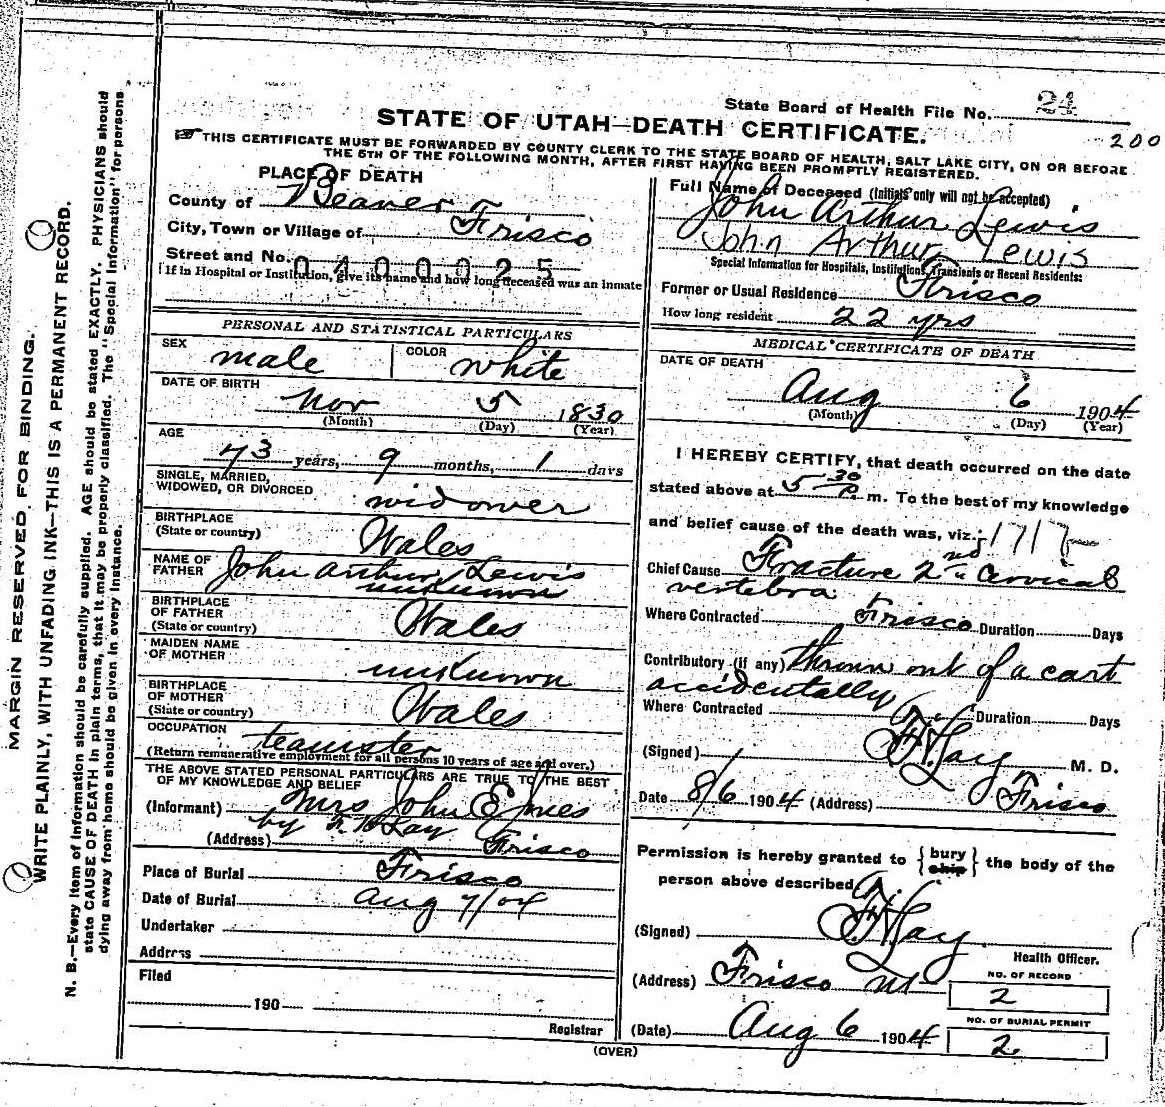 State Board of Health File No. 24
200
STATE OF UTAH—DEATH CERTIFICATE.
THIS CERTIFICATE MUST BE FORWARDED BY COUNTY CLERK TO THE STATE BOARD OF HEALTH, SALT LAKE CITY, ON OR BEFORE
THE 5TH OF THE FOLLOWING MONTH, AFTER FIRST HAVING BEEN PROMPTLY REGISTERED.
MARGIN RESERVED FOR BINDING.
WRITE PLAINLY, WITH UNFADING INK—THIS IS A PERMANENT RECORD.
N. B.—Every item of information should be carefully supplied. AGE should be stated EXACTLY. PHYSICIANS should
state CAUSE OF DEATH in plain terms, that it may be properly classified. The "Special Information" for persons
dying away from home should be given in every instance.
PLACE OF DEATH
County of Beaver
City, Town or Village of Frisco
Street and No. 0400025
If in Hospital or Institution, give its name and how long deceased was an inmate
PERSONAL AND STATISTICAL PARTICULARS
SEX male COLOR white
DATE OF BIRTH
Nov 5 1830
(Month) (Day) (Year)
AGE
73 years, 9 months, 1 days
SINGLE, MARRIED,
WIDOWED, OR DIVORCED widower
BIRTHPLACE
(State or country) Wales
NAME OF
FATHER John Arthur Lewis
unknown
BIRTHPLACE
OF FATHER
(State or country) Wales
MAIDEN NAME
OF MOTHER unknown
BIRTHPLACE
OF MOTHER
(State or country) Wales
OCCUPATION teamster
(Return remunerative employment for all persons 10 years of age and over.)
THE ABOVE STATED PERSONAL PARTICULARS ARE TRUE TO THE BEST
OF MY KNOWLEDGE AND BELIEF
(Informant) Mrs John E Jones
by Lay
(Address) Frisco
Place of Burial Frisco
Date of Burial Aug 7/04
Undertaker
Address
Filed
190
Registrar
Full Name of Deceased (Initials only will not be accepted)
John Arthur Lewis
John Arthur Lewis
Special Information for Hospitals, Institutions, Transients or Recent Residents:
Former or Usual Residence Frisco
How long resident 22 yrs
MEDICAL CERTIFICATE OF DEATH
DATE OF DEATH
Aug 6 1904
(Month) (Day) (Year)
I HEREBY CERTIFY, that death occurred on the date
stated above at 5 30 P m. To the best of my knowledge
and belief cause of the death was, viz.: 1717
Chief Cause Fracture 2nd Cervical
vertebra
Where Contracted Frisco Duration Days
Contributory (if any) thrown out of a cart
accidentally
Where Contracted Duration Days
(Signed) Lay M. D.
Date 8/6 1904 (Address) Frisco
Permission is hereby granted to { bury ship } the body of the
person above described
(Signed) Lay
Health Officer.
(Address) Frisco Ut
NO. OF RECORD
2
(Date) Aug 6 1904
NO. OF BURIAL PERMIT
2
(OVER)